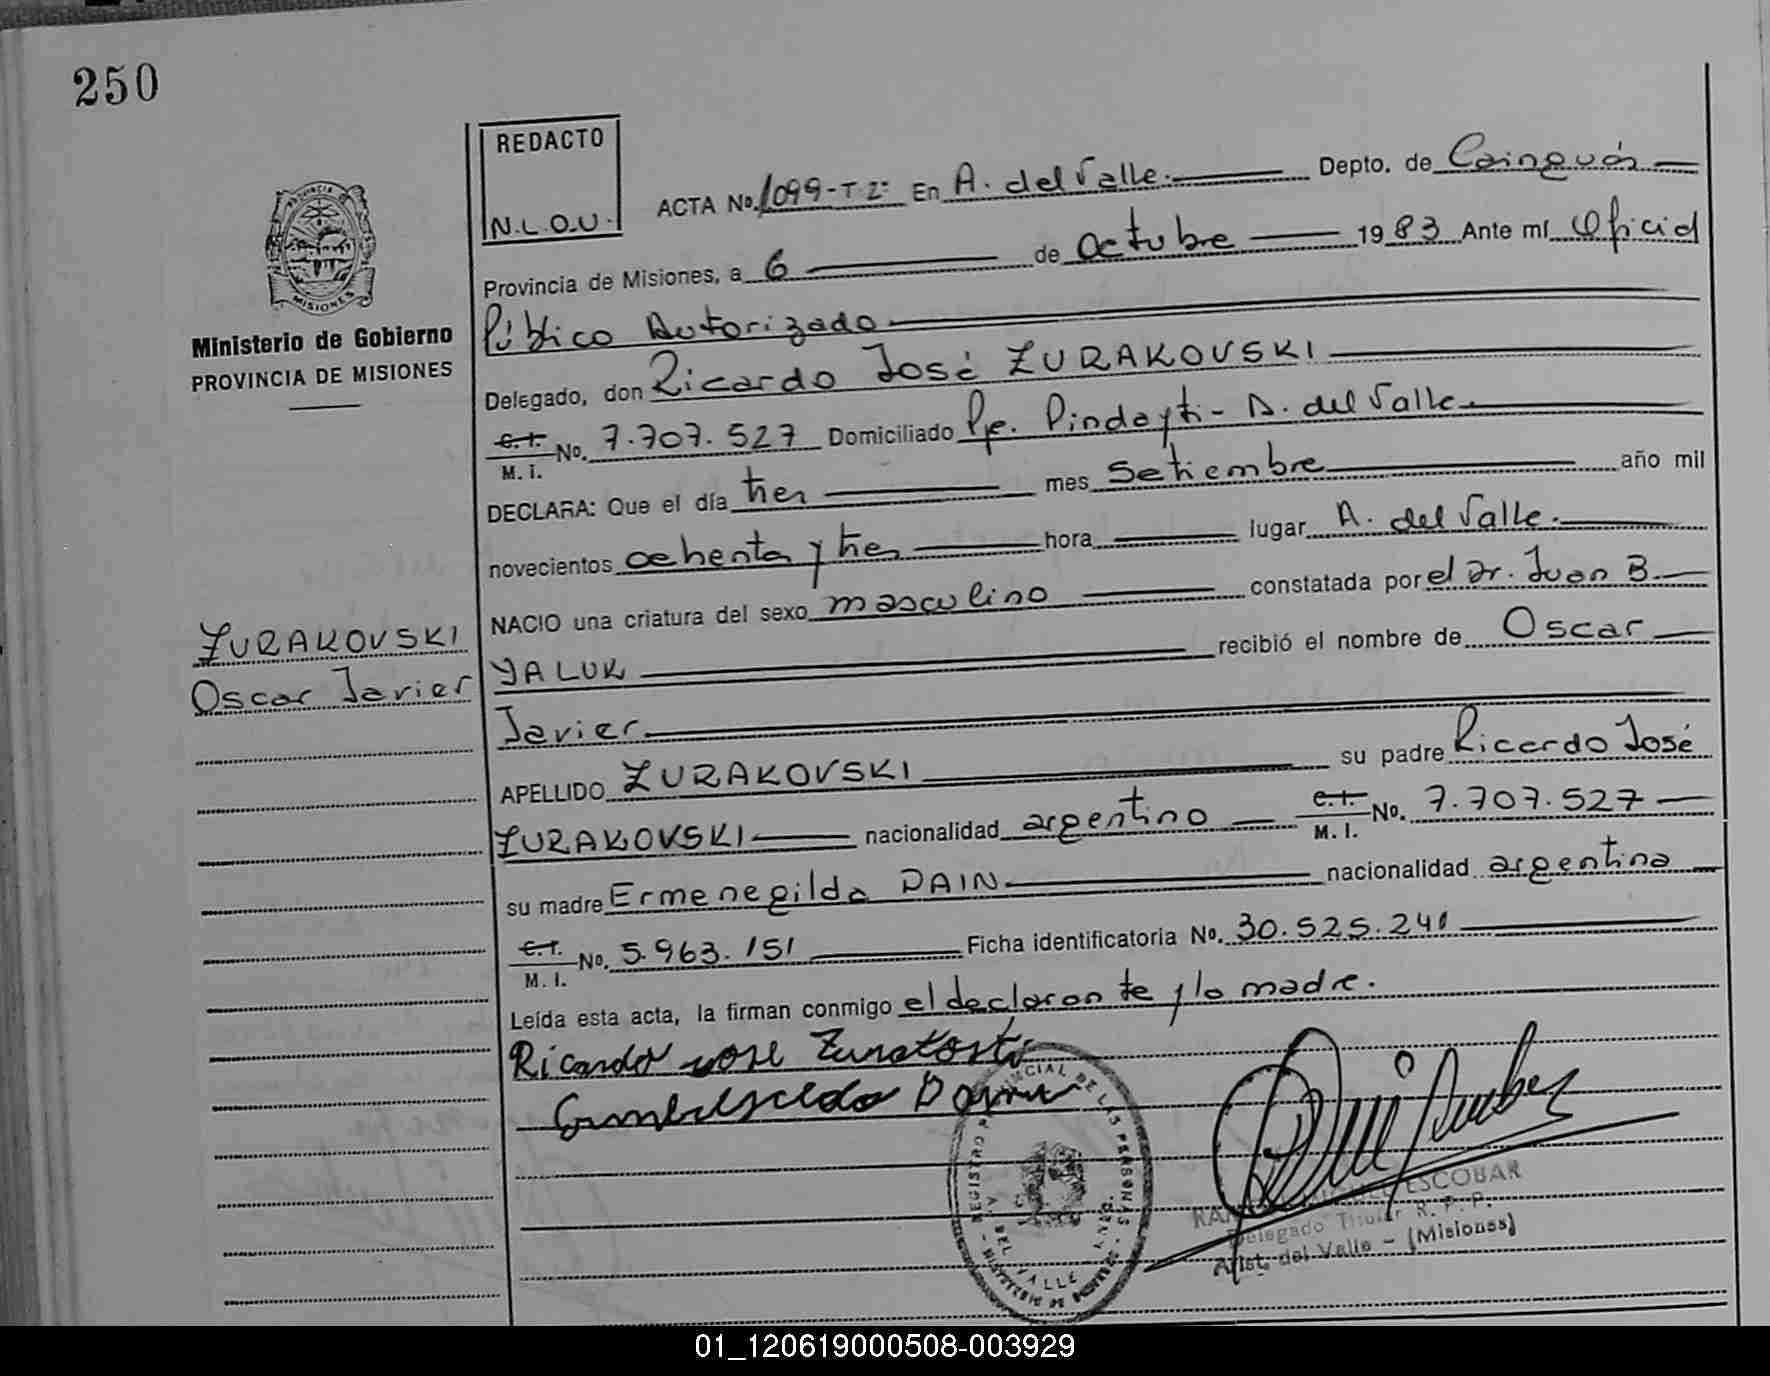 250
REDACTO
N.L.O.U.
PROVINCIA
MISIONES
Ministerio de Gobierno
PROVINCIA DE MISIONES
ACTA No. 1099-T2º En A. del Valle. Depto. de Cainguás
Provincia de Misiones, a 6 de Octubre 1983 Ante mí Oficial
Público Autorizado
Delegado, don Ricardo José ZURAKOVSKI
C.I. M.I. No. 7.707.527 Domiciliado Pje. Pindayti - A. del Valle.
DECLARA: Que el día tres mes Setiembre año mil
novecientos ochenta y tres hora lugar A. del Valle.
NACIO una criatura del sexo masculino constatada por el Dr. Juan B
YALUK recibió el nombre de Oscar
Javier
APELLIDO ZURAKOVSKI su padre Ricardo José
ZURAKOVSKI nacionalidad argentino C.I. M.I. No. 7.707.527
su madre Ermenegilda DAIN nacionalidad argentina
C.I. M.I. No. 5.963.151 Ficha identificatoria No. 30.525.241
Leída esta acta, la firman conmigo el declarante y la madre.
ZURAKOVSKI
Oscar Javier
Ricardo José Zurakoski
REGISTRO PROVINCIAL DE LAS PERSONAS
A. DEL VALLE
ESCOBAR
Delegado Titular R.P.P.
Arist. del Valle - (Misiones)
01_120619000508-003929